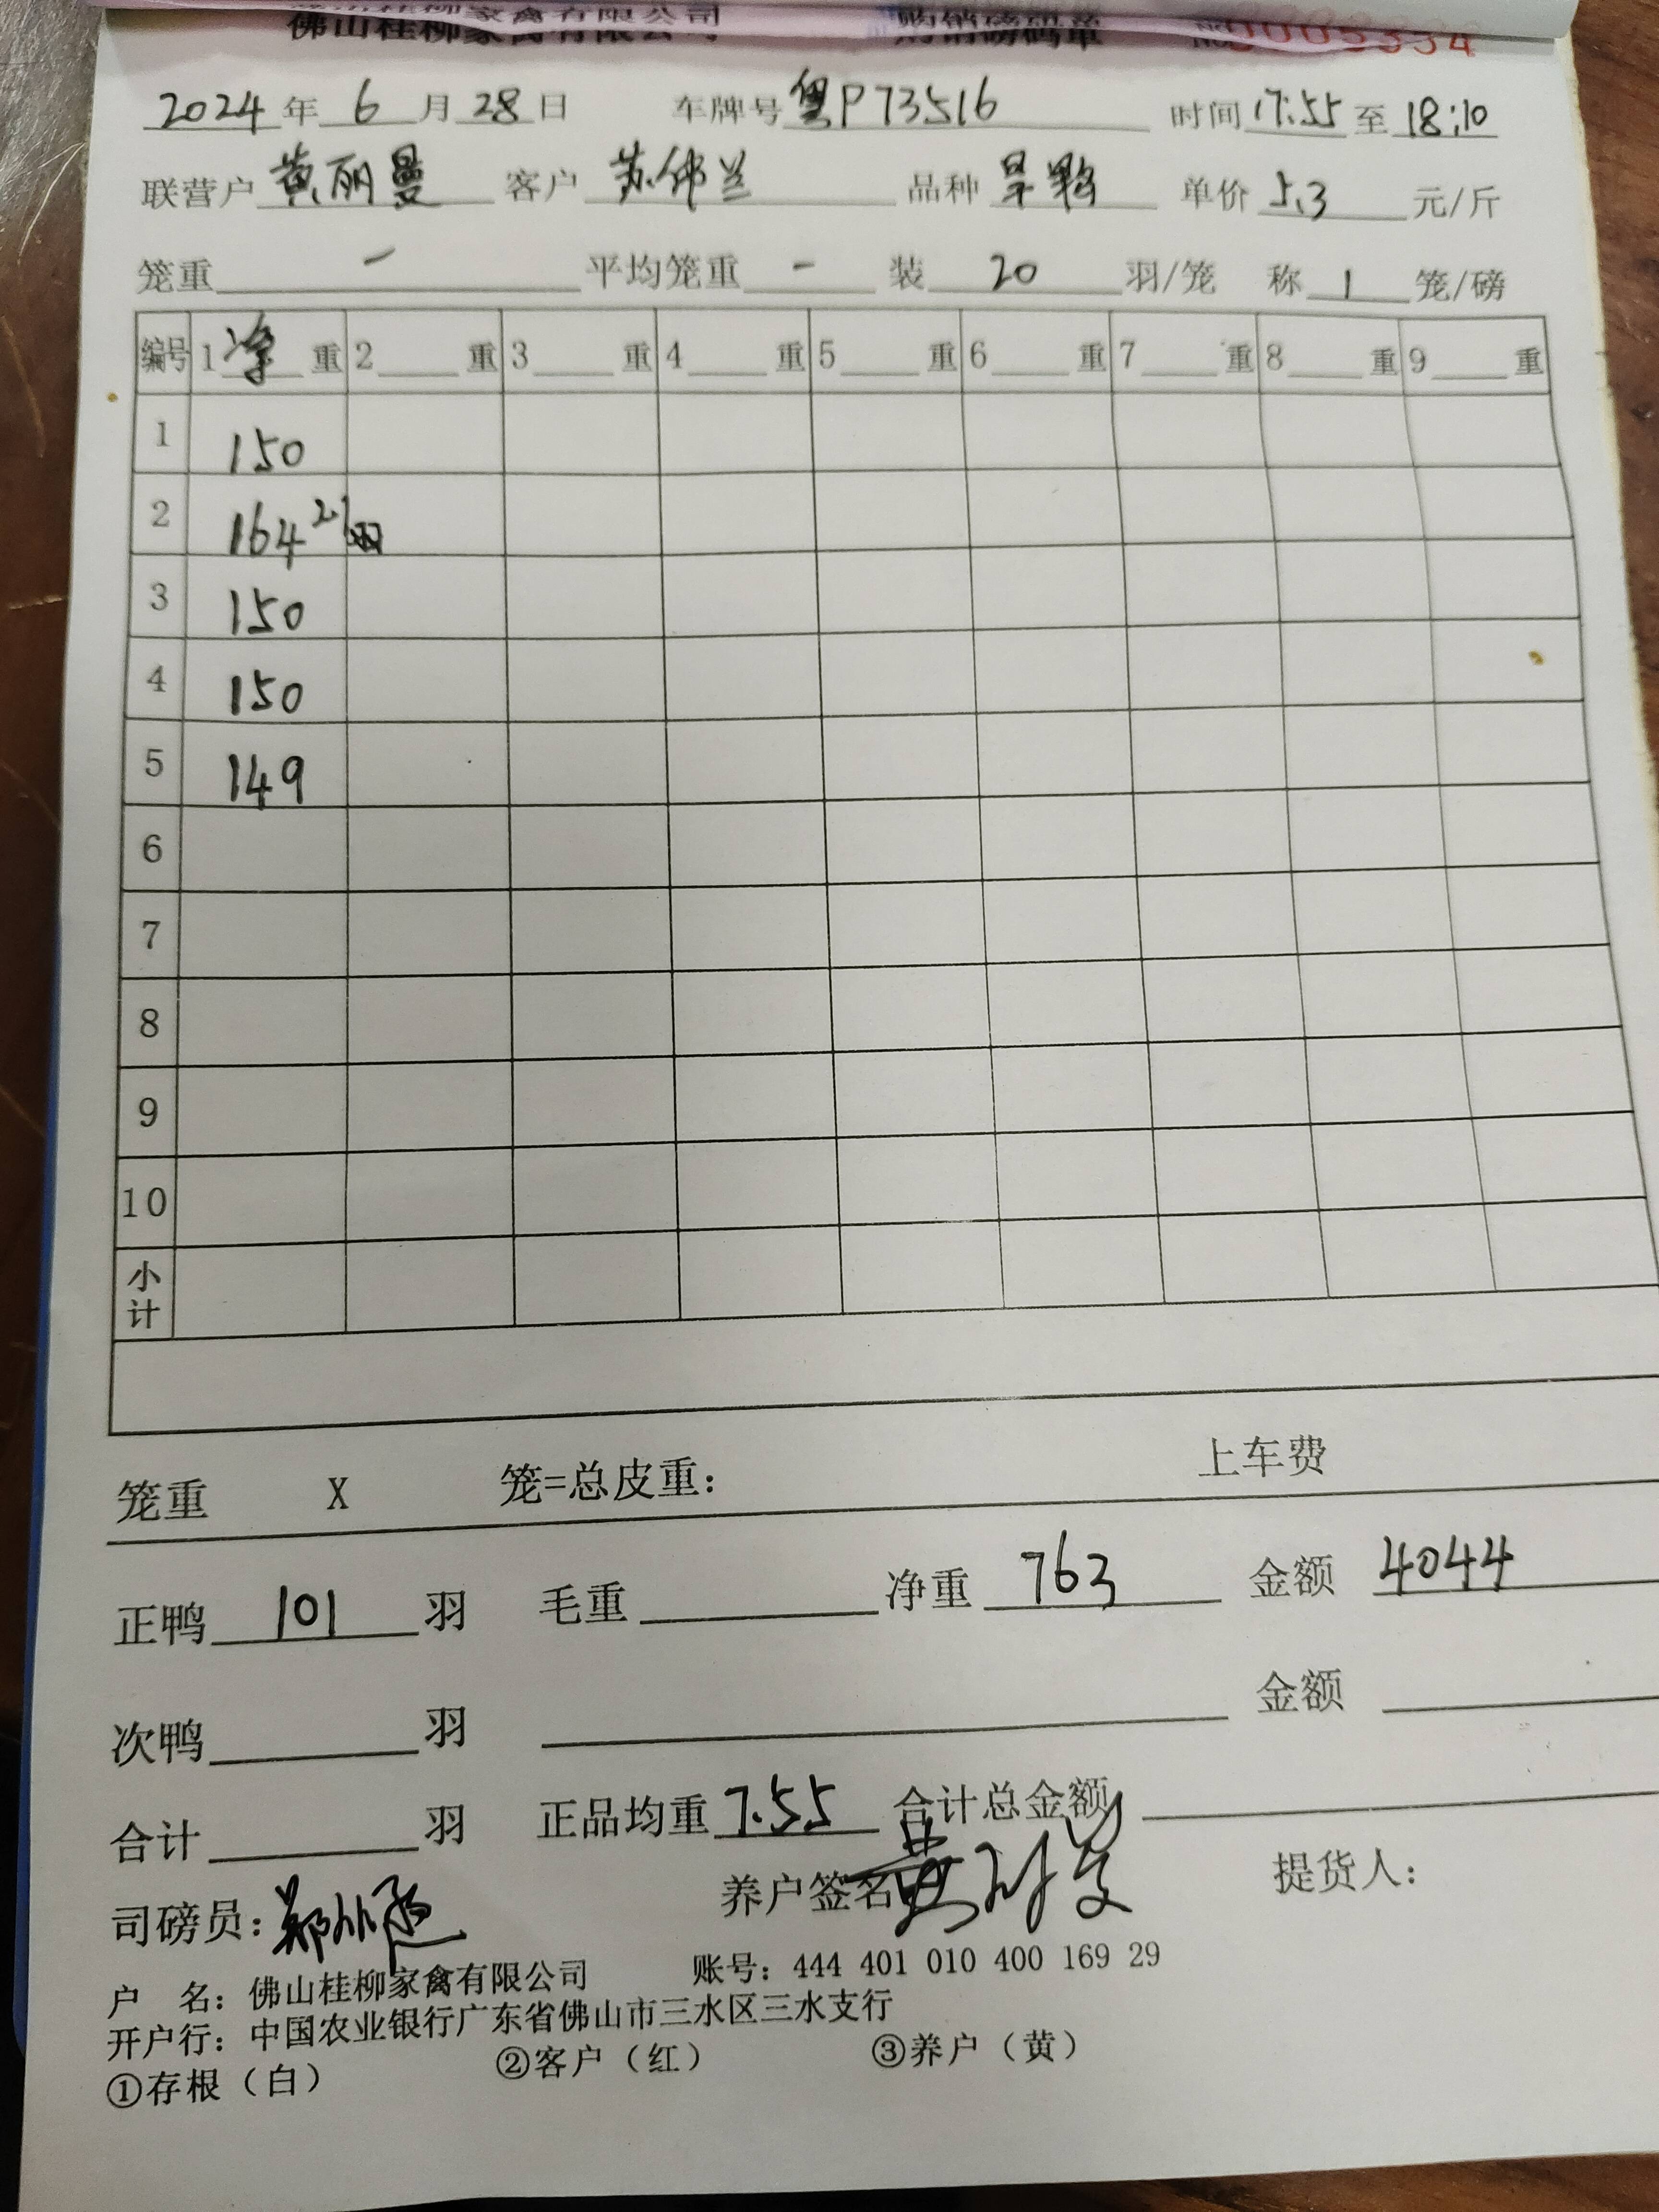 佛山桂柳家禽有限公司 购销磅码单 0005334
2024年 6月 28日 车牌号 粤P73516 时间 17:55 至 18:10
联营户 黄丽曼 客户 苏伟兰 品种 旱鸭 单价 5.3 元/斤
笼重 - 平均笼重 - 装 20 羽/笼 称 1 笼/磅
编号 1 净 重 2 重 3 重 4 重 5 重 6 重 7 重 8 重 9 重
1 150
2 164 21羽
3 150
4 150
5 149
6
7
8
9
10
小计
笼重 X 笼=总皮重： 上车费
正鸭 101 羽 毛重 净重 763 金额 4044
次鸭 羽 金额
合计 羽 正品均重 7.55 合计总金额
司磅员： 养户签名 提货人：
户 名：佛山桂柳家禽有限公司 账号：444 401 010 400 169 29
开户行：中国农业银行广东省佛山市三水区三水支行
①存根（白） ②客户（红） ③养户（黄）